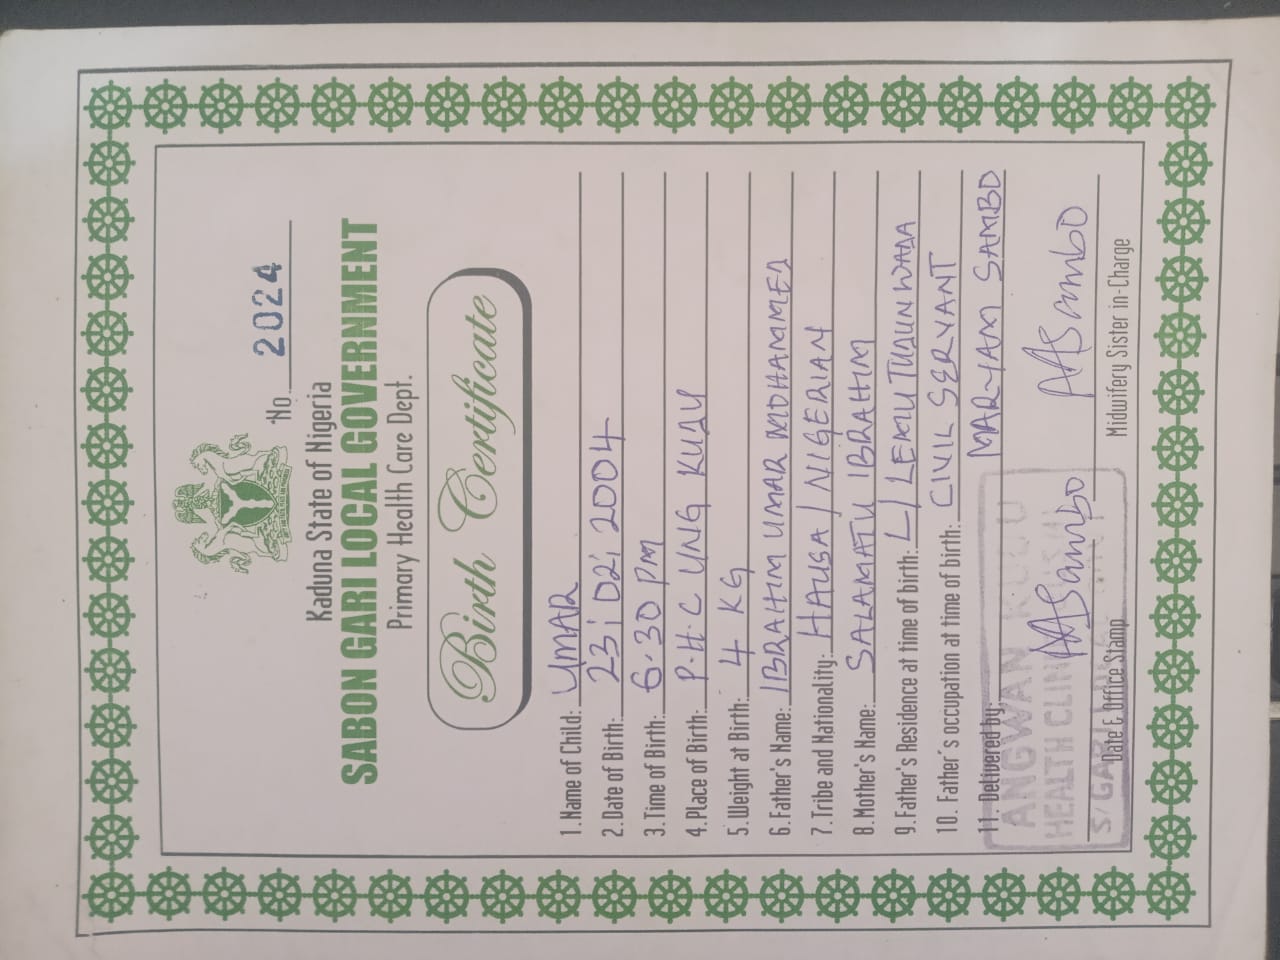 No. 2024
Kaduna State of Nigeria
SABON GARI LOCAL GOVERNMENT
Primary Health Care Dept.
Birth Certificate
1. Name of Child: UMAR
2. Date of Birth: 23; 02; 2004
3. Time of Birth: 6.30 pm
4. Place of Birth: P.H.C UNG KUDU
5. Weight at Birth: 4 KG
6. Father's Name: IBRAHIM UMAR MOHAMMED
7. Tribe and Nationality: HAUSA / NIGERIAN
8. Mother's Name: SALAMATU IBRAHIM
9. Father's Residence at time of birth: L/LEMU TUDUN WADA
10. Father's occupation at time of birth: CIVIL SERVANT
11. Delivered by: MARYAM SAMBO
ANGWAN KUDU
HEALTH CLINIC
S/GARI
AASambo AASambo
Date & Office Stamp Midwifery Sister in-Charge